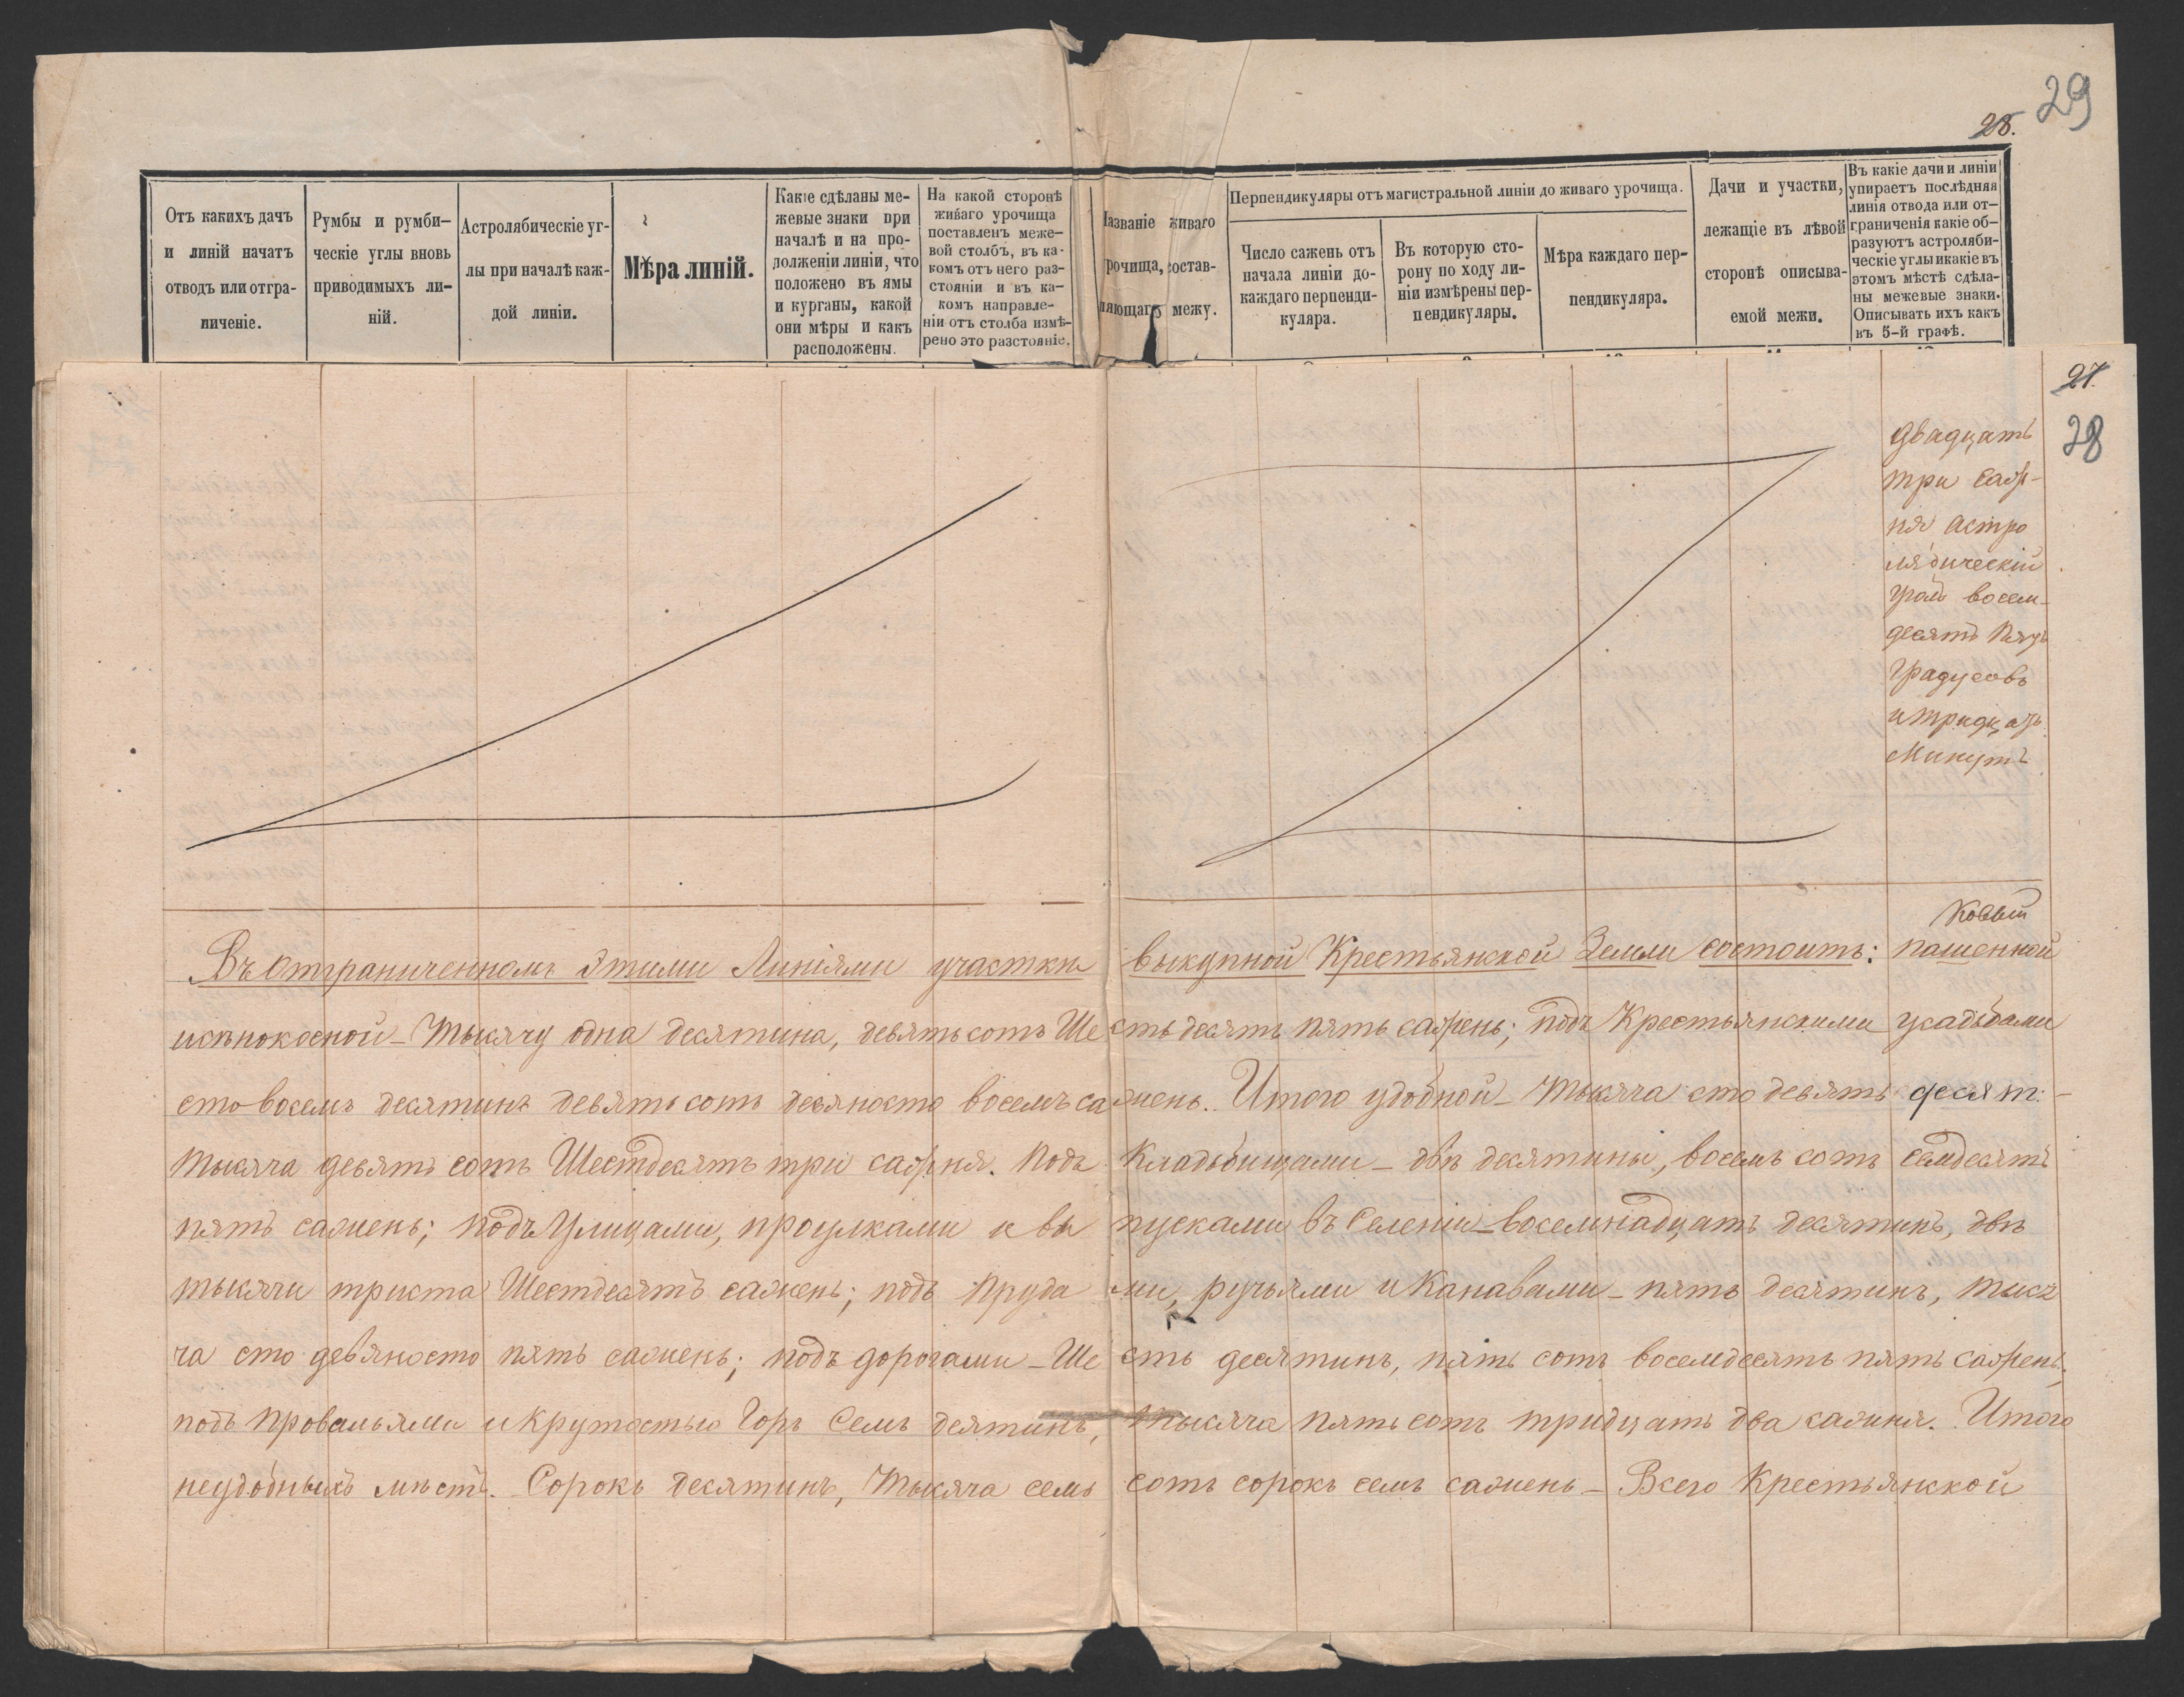 29
28.
Отъ какихъ дачъ
и линій начатъ
отводъ или отгра-
ниченіе.
Румбы и румби-
ческіе углы вновь
приводимыхъ ли-
ній.
Астролябическіе уг-
лы при началѣ каж-
дой линіи.
Мѣра линій.
Какіе сдѣланы ме-
жевые знаки при
началѣ и на про-
долженіи линіи, что
положено въ ямы
и курганы, какой
они мѣры и какъ
расположены.
На какой сторонѣ
живаго урочища
поставленъ меже-
вой столбъ, въ ка-
комъ отъ него раз-
стояніи и въ ка-
комъ направле-
ніи отъ столба измѣ-
рено это разстояніе.
Названіе живаго
рочища, состав-
ляющаго межу.
Перпендикуляры отъ магистральной линіи до живаго урочища.
Число сажень отъ
начала линіи до-
каждаго перпенди-
куляра.
Въ которую сто-
рону по ходу ли-
ніи измѣрены пер-
пендикуляры.
Мѣра каждаго пер-
пендикуляра.
Дачи и участки,
лежащіе въ лѣвой
сторонѣ описыва-
емой межи.
Въ какіе дачи и линіи
упираетъ послѣдняя
линія отвода или от-
граниченія какіе об-
разуютъ астроляби-
ческіе углы и какіе въ
этомъ мѣстѣ сдѣла-
ны межевые знаки.
Описывать ихъ какъ
въ 5-й графѣ.
27.
28
двадцать
три саж-
ня астро
лябическій
уголъ восем-
десятъ пять
градусовъ
и тридцать
минутъ
Въ отграниченномъ этими Линіями участкѣ выкупной Крестьянской Земли состоитъ: пашенной
исѣнокосной - Тысячу одна десятина, девятьсотъ Шестьдесятъ пять сажень; подъ Крестьянскими усадьбами
сто восемь десятинъ девятьсотъ девяносто восемь сажень. Итого удобной - Тысяча сто девять десят:
тысяча девять сотъ Шестдесятъ три сажня. Подъ Кладбищами - двѣ десятины, восемь сотъ семдесятъ
пять сажень; подъ Улицами, проулками и выпусками въ Селеніи - восемнадцать десятинъ, двѣ
тысячи триста Шестдесятъ сажень; подъ Прудами, ручьями и Канавами - пять десятинъ, тыся
ча сто девяносто пять сажень; подъ дорогами - Шесть десятинъ, пять сотъ восемдесятъ пять сажень;
подъ провальями и Крутостью Горъ Семь десятинъ, тысяча пять сотъ тридцать два сажня. Итого
неудобныхъ мѣстъ. Сорокъ десятинъ, Тысяча семь сотъ сорокъ семь сажень - Всего Крестьянской